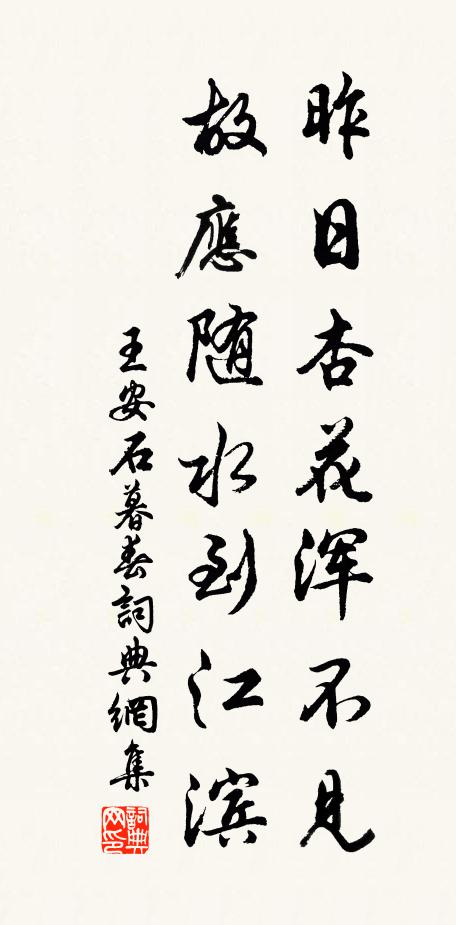 昨日杏花浑不见
故應随水到江滨
王安石暮春詞典網集
詞典网印